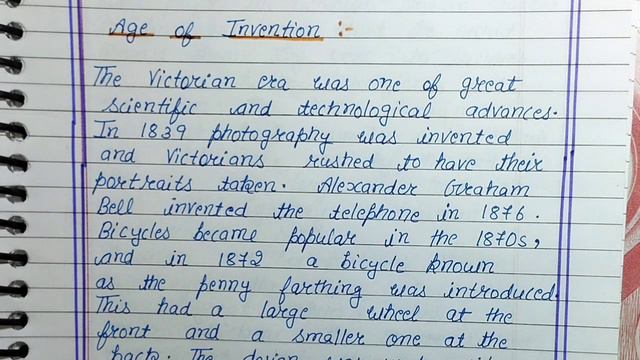 Age of Invention :-
The Victorian era was one of great
scientific and technological advances.
In 1839 photography was invented
and Victorians rushed to have their
portraits taken. Alexander Graham
Bell invented the telephone in 1876.
Bicycles became popular in the 1870s,
and in 1872 a bicycle known
as the penny farthing was introduced.
This had a large wheel at the
front and a smaller one at the
back. The design